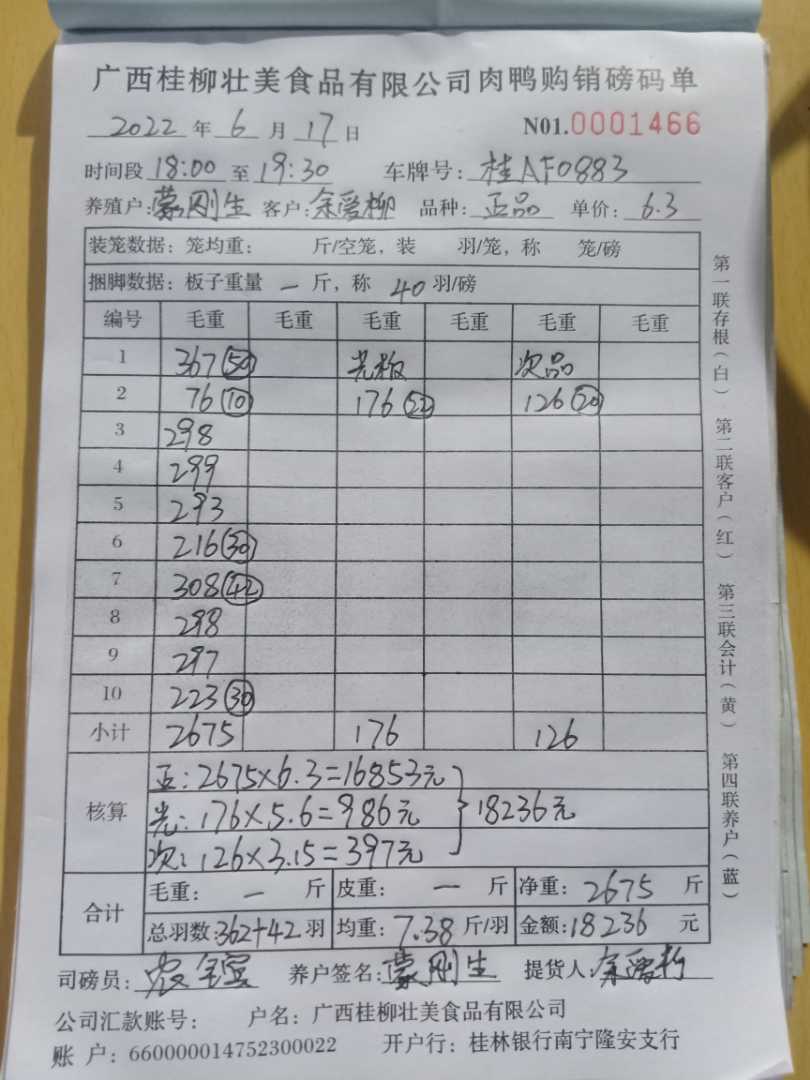 广西桂柳壮美食品有限公司肉鸭购销磅码单
2022 年 6 月 17 日 N01.0001466
时间段 18:00 至 19:30 车牌号: 桂AF0883
养殖户: 蒙刚生 客户: 余爱柳 品种: 正品 单价: 6.3
装笼数据: 笼均重: 斤/空笼, 装 羽/笼, 称 笼/磅
捆脚数据: 板子重量 一 斤, 称 40 羽/磅
编号 毛重 毛重 毛重 毛重 毛重 毛重
1 367(50) 光板 次品
2 76(10) 176(22) 126(20)
3 298
4 299
5 293
6 216(30)
7 308(42)
8 298
9 297
10 223(30)
小计 2675 176 126
核算 正: 2675×6.3=16853元
光: 176×5.6=986元 18236元
次: 126×3.15=397元
合计 毛重: 一 斤 皮重: 一 斤 净重: 2675 斤
总羽数: 362+42 羽 均重: 7.38 斤/羽 金额: 18236 元
司磅员: 养户签名: 蒙刚生 提货人: 余爱柳
公司汇款账号: 户名: 广西桂柳壮美食品有限公司
账 户: 660000014752300022 开户行: 桂林银行南宁隆安支行
第一联存根(白) 第二联客户(红) 第三联会计(黄) 第四联养户(蓝)